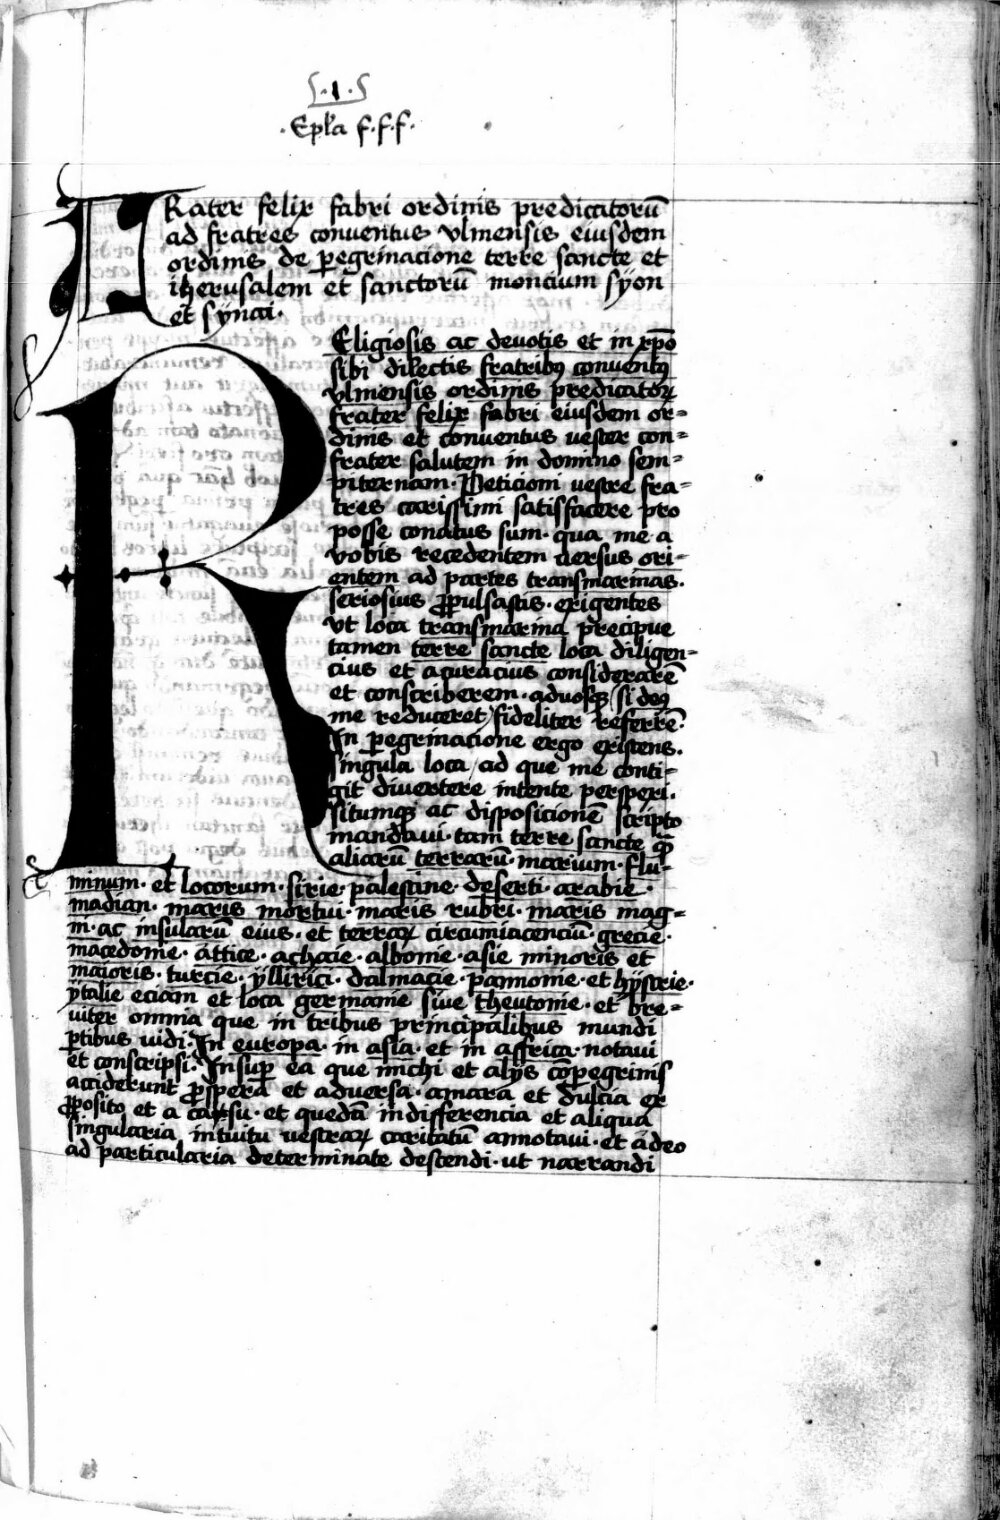 .1.
.Epl̄a f.f.f.
FRater felix fabri ordinis predicatorū
ad fratres conventus vlmensis eiusdem
ordinis de ꝑegrinacione terre sancte et
iherusalem et sanctorū moncium syon
et synai.
REligiosis ac devotis et in xp̄o
sibi dilectis fratribꝰ conventꝰ
vlmensis ordinis predicatorꝝ
frater felix fabri eiusdem or=
dinis et conventus vester con=
frater salutem in domino sem=
piternam. Peticioni vestre fra=
tres carissimi satisfacere pro
posse conatus sum. qua me a
vobis recedentem versus ori=
entem ad partes transmarinas.
seriosius ꝓpulsastis. exigentes
vt loca transmarina precipue
tamen terre sancte loca diligen=
cius et acuracius considerarē
et conscriberem. advosqꝫ / si deꝰ
me reduceret / fideliter referrē.
In ꝑegrinacione ergo existens.
singula loca / ad que me conti=
git divertere intente perspexi.
situmqꝫ ac disposicionē scripto
mandavi. tam terre sancte qᷓ
aliarū terrarū. marium. flu=
minum. et locorum. sirie. palestine. deserti. arabie.
madian. maris mortui. maris rubri. maris mag=
ni. ac insularū eius. et terrarꝝ circumiacenciū. grecie.
macedonie. attice. achacie. albonie. asie minoris et
maioris. turcie. yllirici. dalmacie. pannonie. et hystrie.
ytalie eciam et loca germanie sive theutonie. et bre=
viter omnia que in tribus principalibus mundi
ꝑtibus vidi. In europa. in asia. et in affrica. notavi
et conscripsi. Insuꝑ ea que michi et alijs cōꝑegrinis
acciderunt ꝓspera et adversa. amara et dulcia ex
ꝓposito et a casu. et quedā indifferencia et aliqua
singularia intuitu vestrarꝝ caritatū annotavi. et adeo
ad particularia determinate descendi. ut narrandi